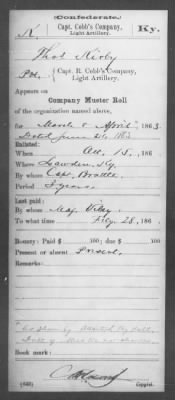 (Confederate.)
K Capt. Cobb's Company, Light Artillery. Ky.
Thos Kirby
Pvt., Capt. R. Cobb's Company, Light Artillery.
Appears on
Company Muster Roll
of the organization named above,
for March & April, 1863.
Dated June 21, 1863
Enlisted:
When Oct. 15, 186
Where Ky.
By whom Capt.
Period 3 years
Last paid:
By whom Maj.
To what time Feby 28, 186
Bounty: Paid $ 100; due $ 100
Present or absent Present
Remarks:
Book mark:
(642) Copyist.